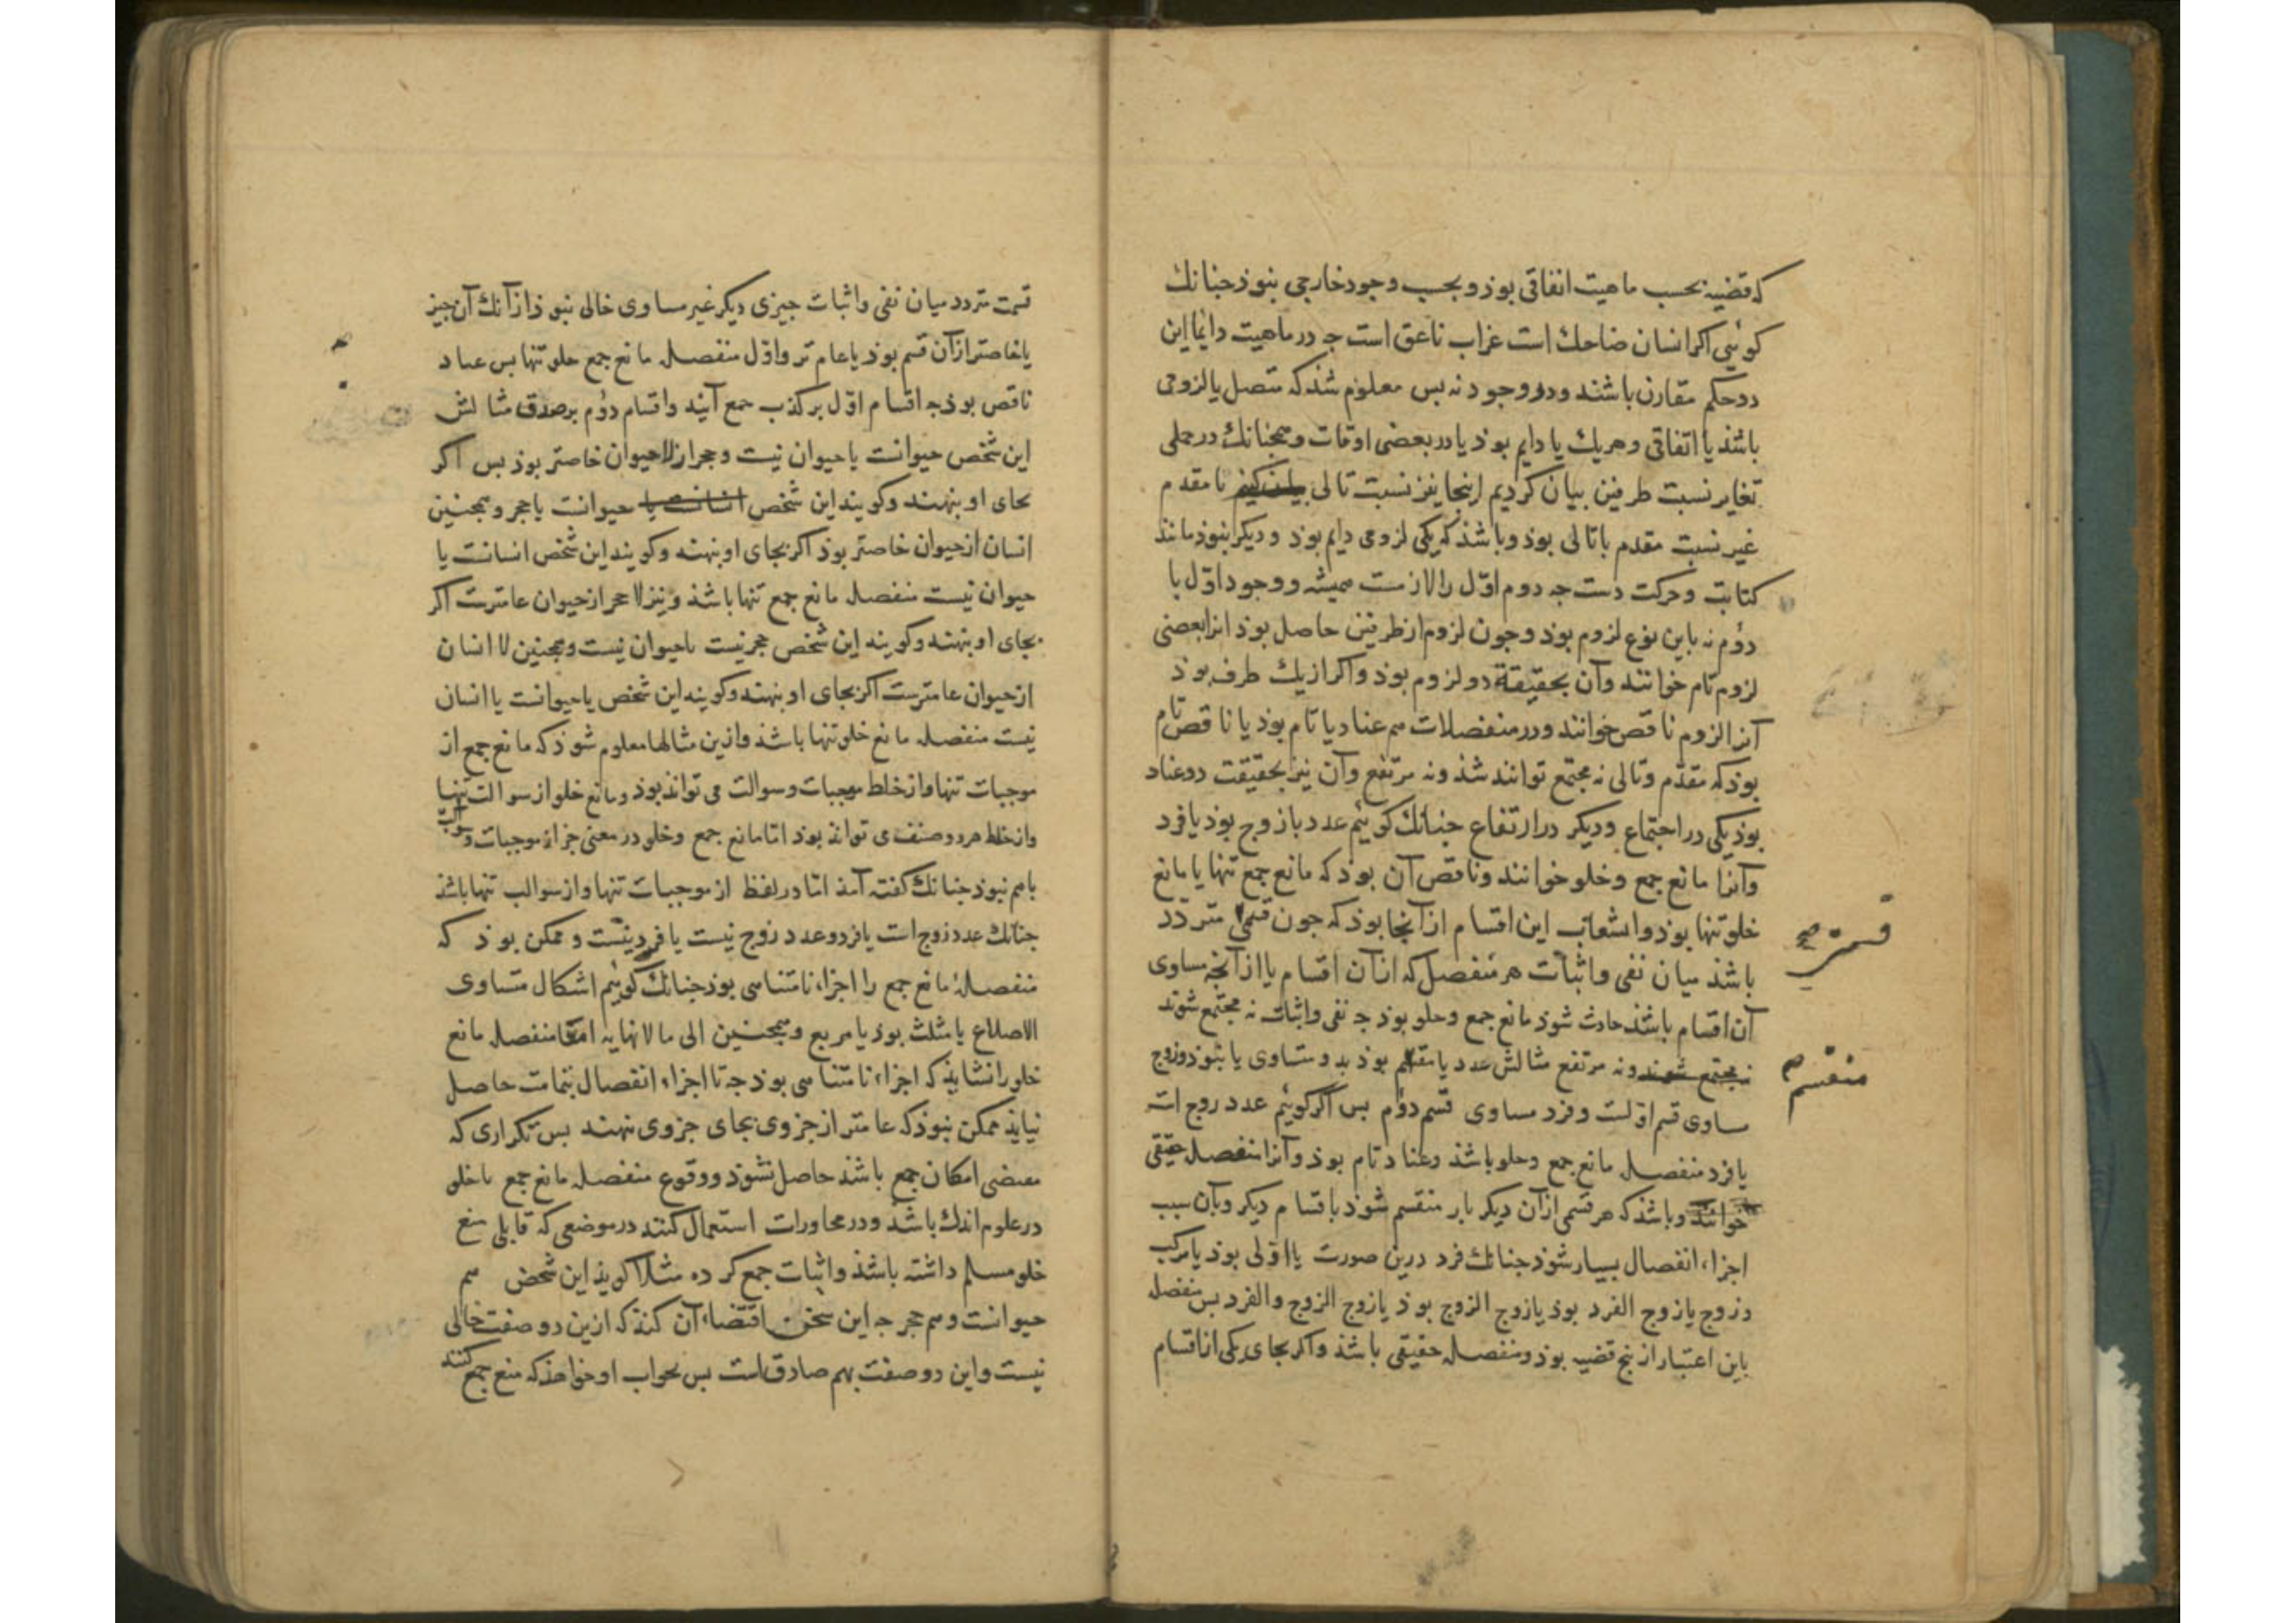 که قضیه بحسب ماهیت اتفاقی بوذ و بحسب وجود خارجی نبوذ جنانك
کوئیی اکر انسان ضاحك است غراب ناعق است جه در ماهیت دایما این
دو حکم مقارن باشند و در وجود نه بس معلوم شذ که متصل یا لزومی
باشذ یا اتفاقی و هر یك یا دایم بوذ یا در بعضی اوقات و همجنانك در حملی
تغایر نسبت طرفین بیان کردیم اینجا نیز نسبت تالی با مقدم
غیر نسبت مقدم با تالی بوذ و باشذ که یکی لزومی دایم بوذ و دیکر نبوذ مانند
کتابت و حرکت دست جه دوم اول را لازمست همیشه و وجود اول با
دوم نه باین نوع لزوم بوذ و جون لزوم از طرفین حاصل بوذ انرا بعضی
لزوم تام خوانند و آن بحقیقة دو لزوم بوذ و اکر از یك طرف بوذ
آنرا لزوم ناقص خوانند و در منفصلات هم عناد یا تام بوذ یا ناقص تام
بوذ که مقدم و تالی نه مجتمع توانند شذ و نه مرتفع و آن نیز بحقیقت دو عناد
بوذ یکی در اجتماع و دیکر در ارتفاع جنانك کوئیم عدد یا زوج بوذ یا فرد
و آنرا مانع جمع و خلو خوانند و ناقص آن بوذ که مانع جمع تنها یا مانع
خلو تنها بوذ و انشعاب این اقسام از آنجا بوذ که جون قسمی متردد
قسمتی صح
باشذ میان نفی و اثبات هر منفصل که از آن اقسام یا از آنجه مساوی
آن اقسام باشذ حادث شوذ مانع جمع و خلو بوذ جه نفی و اثبات نه مجتمع شوند
نه مجتمع شوند و نه مرتفع مثالش عدد یا منقسم بوذ بدو متساوی یا نبوذ و زوج
منقسم
مساوی قسم اولست و فرد مساوی قسم دوم بس اکر کوئیم عدد زوج است
یا فرد منفصله مانع جمع و خلو باشذ و عناد تام بوذ و آنرا منفصله حقیقی
خوانند و باشذ که هر قسمی از آن دیکر بار منقسم شوذ باقسام دیکر و بآن سبب
اجزاء انفصال بسیار شوذ جنانك فرد درین صورت یا اولی بوذ یا مرکب
و زوج یا زوج الفرد بوذ یا زوج الزوج بوذ یا زوج الزوج والفرد بس منفصله
باین اعتبار از بنج قضیه بوذ و منفصله حقیقی باشذ و اکر بجای یکی از اقسام
قسمت متردد میان نفی و اثبات جیزی دیکر غیر مساوی خالی نبوذ از آنك آن جیز
یا خاصتر از آن قسم بوذ یا عام تر و اول منفصله مانع جمع خلو تنها بس عناد
ناقص بوذ جه اقسام اول بر کذب جمع آیند و اقسام دوم بر صدق مثالش
این شخص حیوانست یا حیوان نیست و حجر از لاحیوان خاصتر بوذ بس اکر
بجای او بنهند و کویند این شخص انسانست یا حیوانست یا حجر و همجنین
انسان از حیوان خاصتر بوذ اکر بجای او بنهند و کویند این شخص انسانست یا
حیوان نیست منفصله مانع جمع تنها باشذ و نیز لاحجر از حیوان عامترست اکر
بجای او بنهند و کویند این شخص حجر نیست یا حیوان نیست و همجنین لا انسان
از حیوان عامترست اکر بجای او بنهند و کویند این شخص یا حیوانست یا انسان
نیست منفصله مانع خلو تنها باشذ و ازین مثالها معلوم شوذ که مانع جمع از
موجبات تنها و از خلط موجبات و سوالت می تواند بوذ و مانع خلو از سوالت تنها
و از خلط هر دو صنف می تواند بوذ اما مانع جمع و خلو در معنی جز از موجبات و سوالب
باهم نبوذ جنانك کفته آمذ اما در لفظ از موجبات تنها و از سوالب تنها باشذ
جنانك عدد زوج است یا فرد و عدد زوج نیست یا فرد نیست و ممکن بوذ که
منفصلهٔ مانع جمع را اجزاء نامتناهی بوذ جنانك کوئیم اشکال متساوی
الاضلاع یا مثلث بوذ یا مربع و همجنین الی ما لانهایه اما منفصله مانع
خلو را نشایذ که اجزاء نامتناهی بوذ جه تا اجزاء انفصال بتمامت حاصل
نیایذ ممکن نبوذ که عامتر از جزوی بجای جزوی نهند بس تکراری که
مقتضی امکان جمع باشذ حاصل نشوذ و وقوع منفصله مانع جمع یا خلو
در علوم اندك باشذ و در محاورات استعمال کنند در موضعی که قابلی منع
خلو مسلم داشته باشذ و اثبات جمع کرده مثلا کویذ این شخص هم
حیوانست و هم حجر جه این سخن اقتضاء آن کنذ که ازین دو صفت خالی
نیست و این دو صفت بهم صادق است بس بجواب او خواهذ که منع جمع کنند